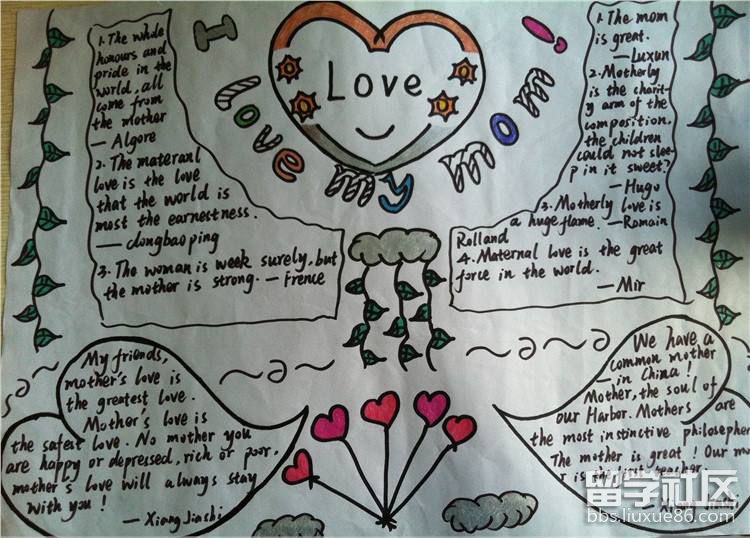 I love my mom!
Love
1. The whole
honours and
pride in the
world, all
come from
the mother
— Algore
2. The materanl
love is the love
that the world is
most the earnestness.
— dongbaoping
3. The woman is week surely, but
the mother is strong. — Frence
1. The mom
is great.
— Luxun
2. Motherly
is the charit-
y arm of the
composition,
the children
could not slee-
p in it sweet?
— Hugo
3. Motherly love is
a huge flame. — Romain
Rolland
4. Maternal love is the great
force in the world.
— Mir
My friends,
mother's love is
the greatest love.
Mother's love is
the safest love. No mother you
are happy or depressed, rich or poor,
mother's love will always stay
with you!
— XiangJiashi
We have a
common mother
— in China!
Mother, the soul of
our Harbor. Mothers are
the most instinctive philosopher
The mother is great! Our mo
r is the first teacher.
留学社区
bbs.liuxue86.com